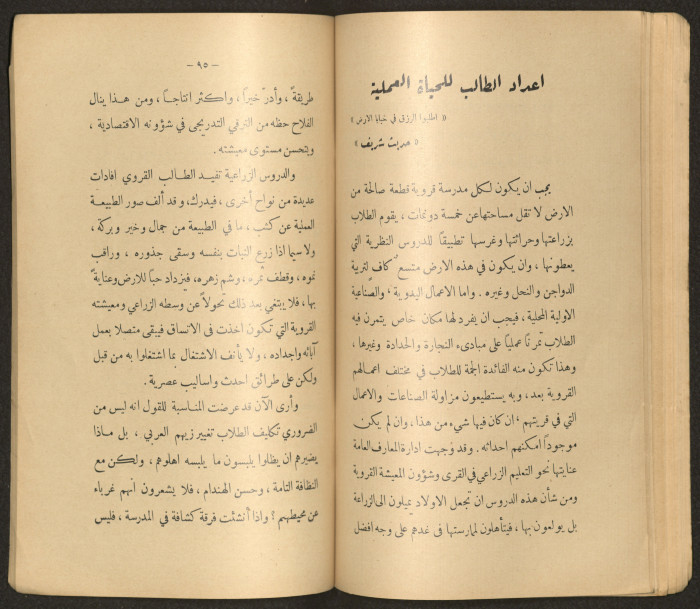 اعداد الطالب للحياة العملية
« اطلبوا الرزق في خبايا الارض »
« حديث شريف »
يجب ان يكون لكل مدرسة قروية قطعة صالحة من
الارض لا تقل مساحتها عن خمسة دونمات ، يقوم الطلاب
بزراعتها وحراثتها وغرسها تطبيقاً للدروس النظرية التي
يعطونها ، وان يكون في هذه الارض متسع كاف لتربية
الدواجن والنحل وغيره . واما الاعمال اليدوية ، والصناعية
الاولية المحلية ، فيجب ان يفرد لها مكان خاص يتمرن فيه
الطلاب تمرناً عملياً على مبادىء النجارة والحدادة وغيرها ،
وهذا تكون منه الفائدة الجمة للطلاب في مختلف اعمالهم
القروية بعد ، وبه يستطيعون مزاولة الصناعات والاعمال
التي في قريتهم ، ان كان فيها شيء من هذا ، وان لم يكن
موجوداً امكنهم احداثه . وقد وجهت ادارة المعارف العامة
عنايتها نحو التعليم الزراعي في القرى وشؤون المعيشة القروية
ومن شأن هذه الدروس ان تجعل الاولاد يميلون الى الزراعة
بل يولعون بها ، فيتأهلون لممارستها في غدهم على وجه افضل
– ٩٥ –
طريقة ، وأدرّ خيراً ، واكثر انتاجاً ، ومن هذا ينال
الفلاح حظه من الترقي التدريجي في شؤونه الاقتصادية ،
ويتحسن مستوى معيشته .
والدروس الزراعية تفيد الطالب القروي افادات
عديدة من نواح أخرى ، فيدرك ، وقد ألف صور الطبيعة
العملية عن كثب ، ما في الطبيعة من جمال وخير وبركة ،
ولا سيما اذا زرع النبات بنفسه وسقى جذوره ، وراقب
نموه ، وقطف ثمره ، وشم زهره ، فيزداد حباً للارض وعناية
بها ، فلا يبتغي بعد ذلك تحولاً عن وسطه الزراعي ومعيشته
القروية التي تكون اخذت في الاتساق فيبقى متصلا بعمل
آبائه واجداده ، ولا يأنف الاشتغال بما اشتغلوا به من قبل
ولكن على طرائق احدث واساليب عصرية .
وأرى الآن قد عرضت المناسبة للقول انه ليس من
الضروري تكليف الطلاب تغيير زيهم العربي ، بل ماذا
يضيرهم ان يظلوا يلبسون ما يلبسه اهلوهم ، ولكن مع
النظافة التامة ، وحسن الهندام ، فلا يشعرون أنهم غرباء
عن محيطهم ؟ واذا أنشئت فرقة كشافة في المدرسة ، فليس